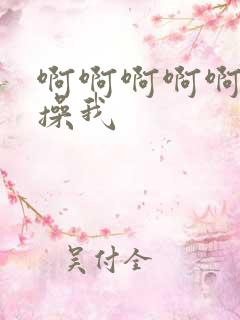 啊啊啊啊啊
操我
吴付全